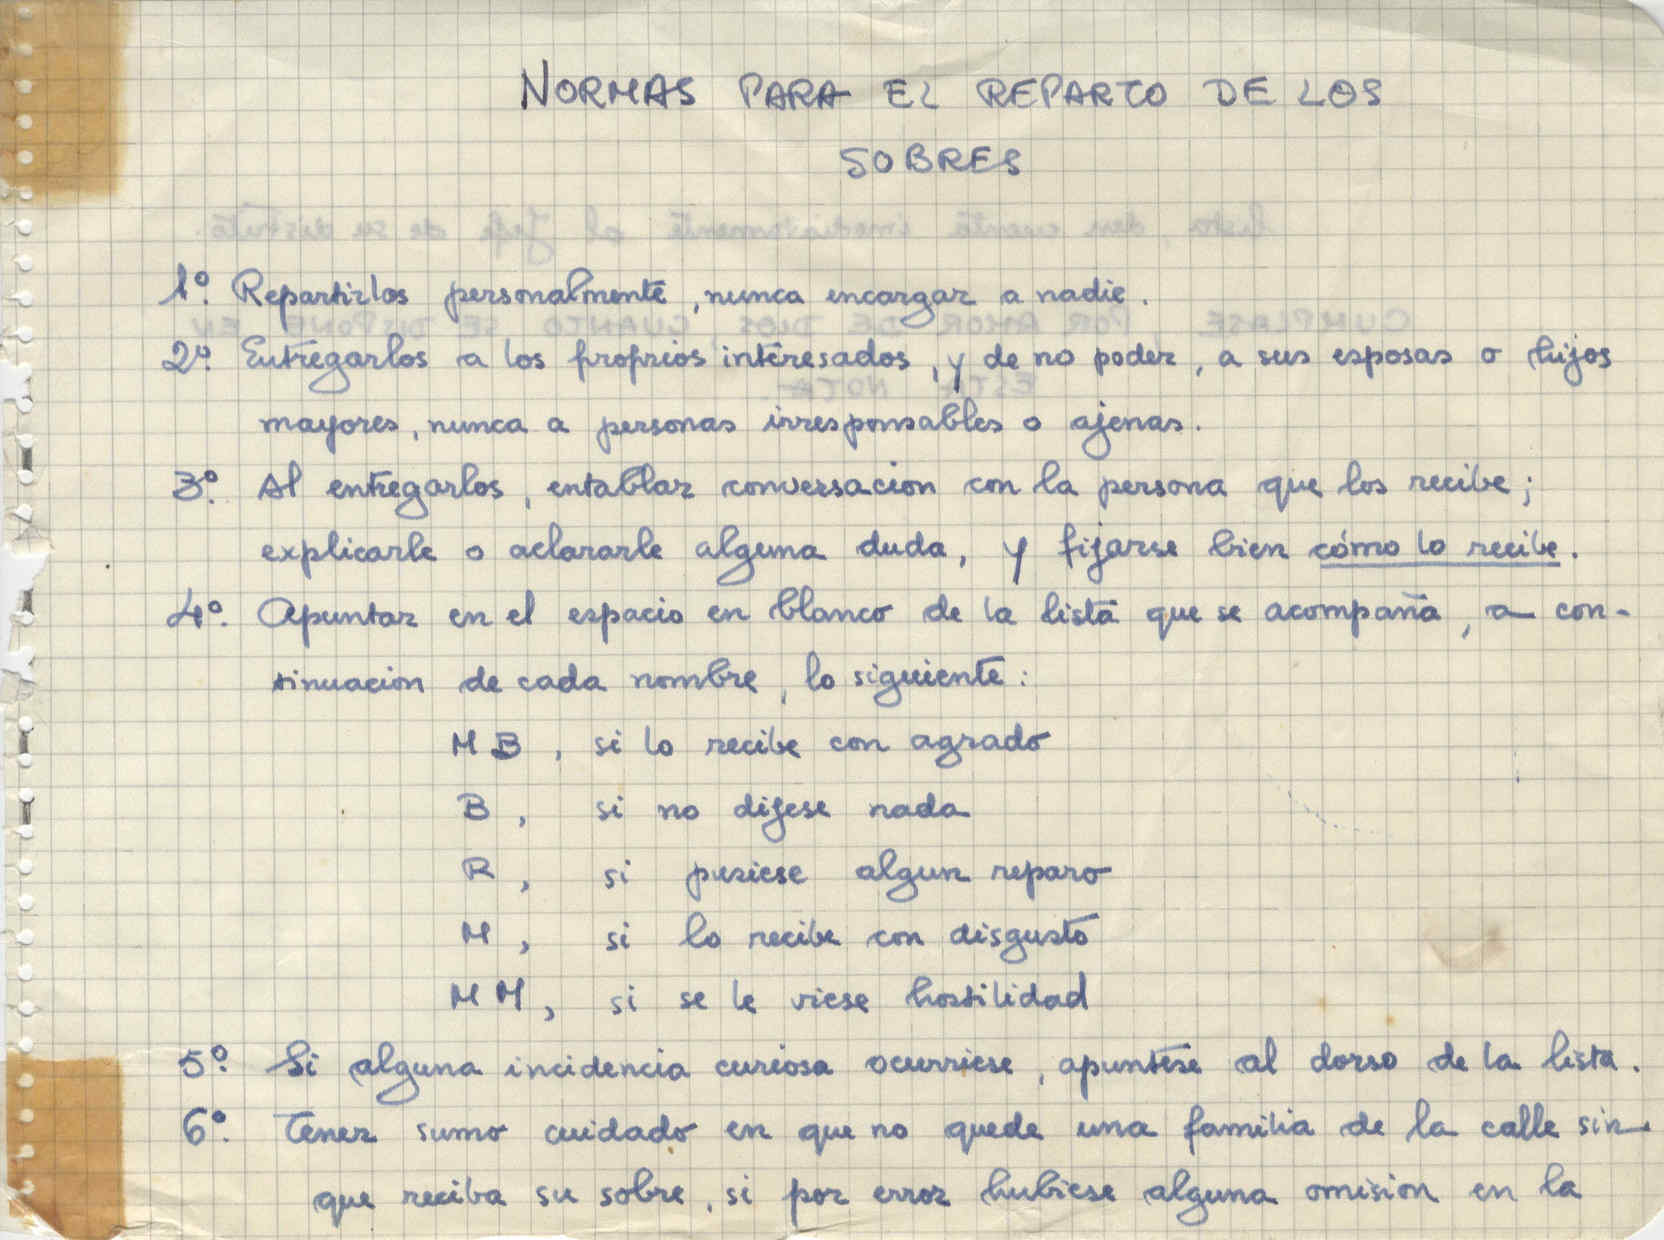 NORMAS PARA EL REPARTO DE LOS
SOBRES
lista, den cuenta inmediatamente al Jefe de su distrito.
1º. Repartirlos personalmente, nunca encargar a nadie.
CUMPLASE, POR AMOR DE DIOS, CUANTO SE DISPONE EN
2º. Entregarlos a los proprios interesados, y de no poder, a sus esposas o hijos
ESTA NOTA.
mayores, nunca a personas irresponsables o ajenas.
3º. Al entregarlos, entablar conversacion con la persona que los recibe;
explicarle o aclararle alguna duda, y fijarse bien cómo lo recibe.
4º. Apuntar en el espacio en blanco de la lista que se acompaña, a con-
tinuacion de cada nombre, lo siguiente:
MB, si lo recibe con agrado
B, si no dijese nada
R, si pusiese algun reparo
M, si lo recibe con disgusto
MM, si se le viese hostilidad
5º. Si alguna incidencia curiosa ocurriese, apuntese al dorso de la lista.
6º. Tener sumo cuidado en que no quede una familia de la calle sin
que reciba su sobre, si por error hubiese alguna omision en la